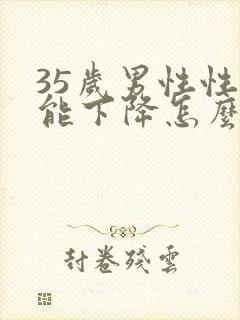 35歲男性性
能下降怎麼
封卷殘雲